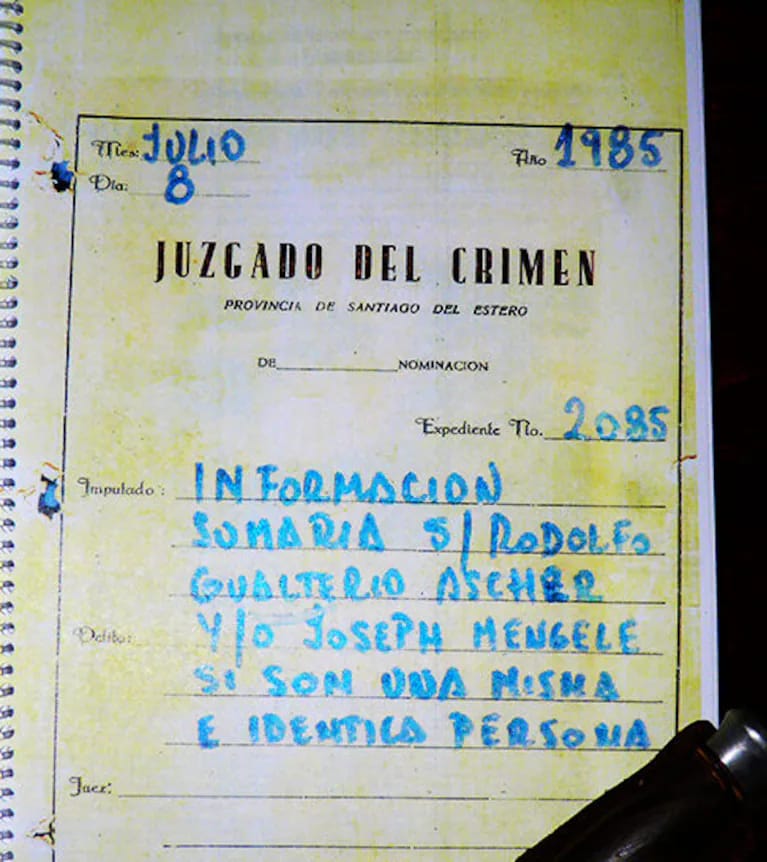 Mes: JULIO Año 1985
Dia: 8
JUZGADO DEL CRIMEN
PROVINCIA DE SANTIAGO DEL ESTERO
DE NOMINACION
Expediente No. 2085
Imputado: INFORMACION
SUMARIA S/ RODOLFO
GUALTERIO ASCHER
Delito: Y/O JOSEPH MENGELE
SI SON UNA MISMA
E IDENTICA PERSONA
Juez: